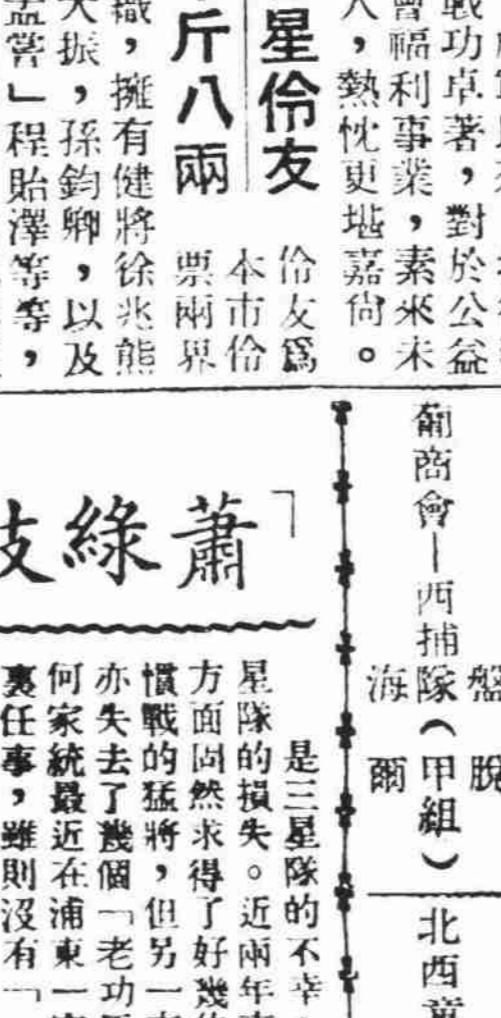 戰功卓著，對於公益
會福利事業，素來未
人，熱忱更堪嘉尚。
星伶友
斤八兩
伶友爲
本市伶
票兩界
織，擁有健將徐兆熊
大振，孫鈞卿，以及
孟嘗」程貽澤等等，
葡商會—西捕隊（甲組）
盤
海
脫
爾
北西童
「蕭綠技
是三星隊的不幸
星隊的損失。近兩年
方面固然求得了好幾
慣戰的猛將，但另一
亦失去了幾個「老功
何家統最近在浦東一
裏任事，雖則沒有「